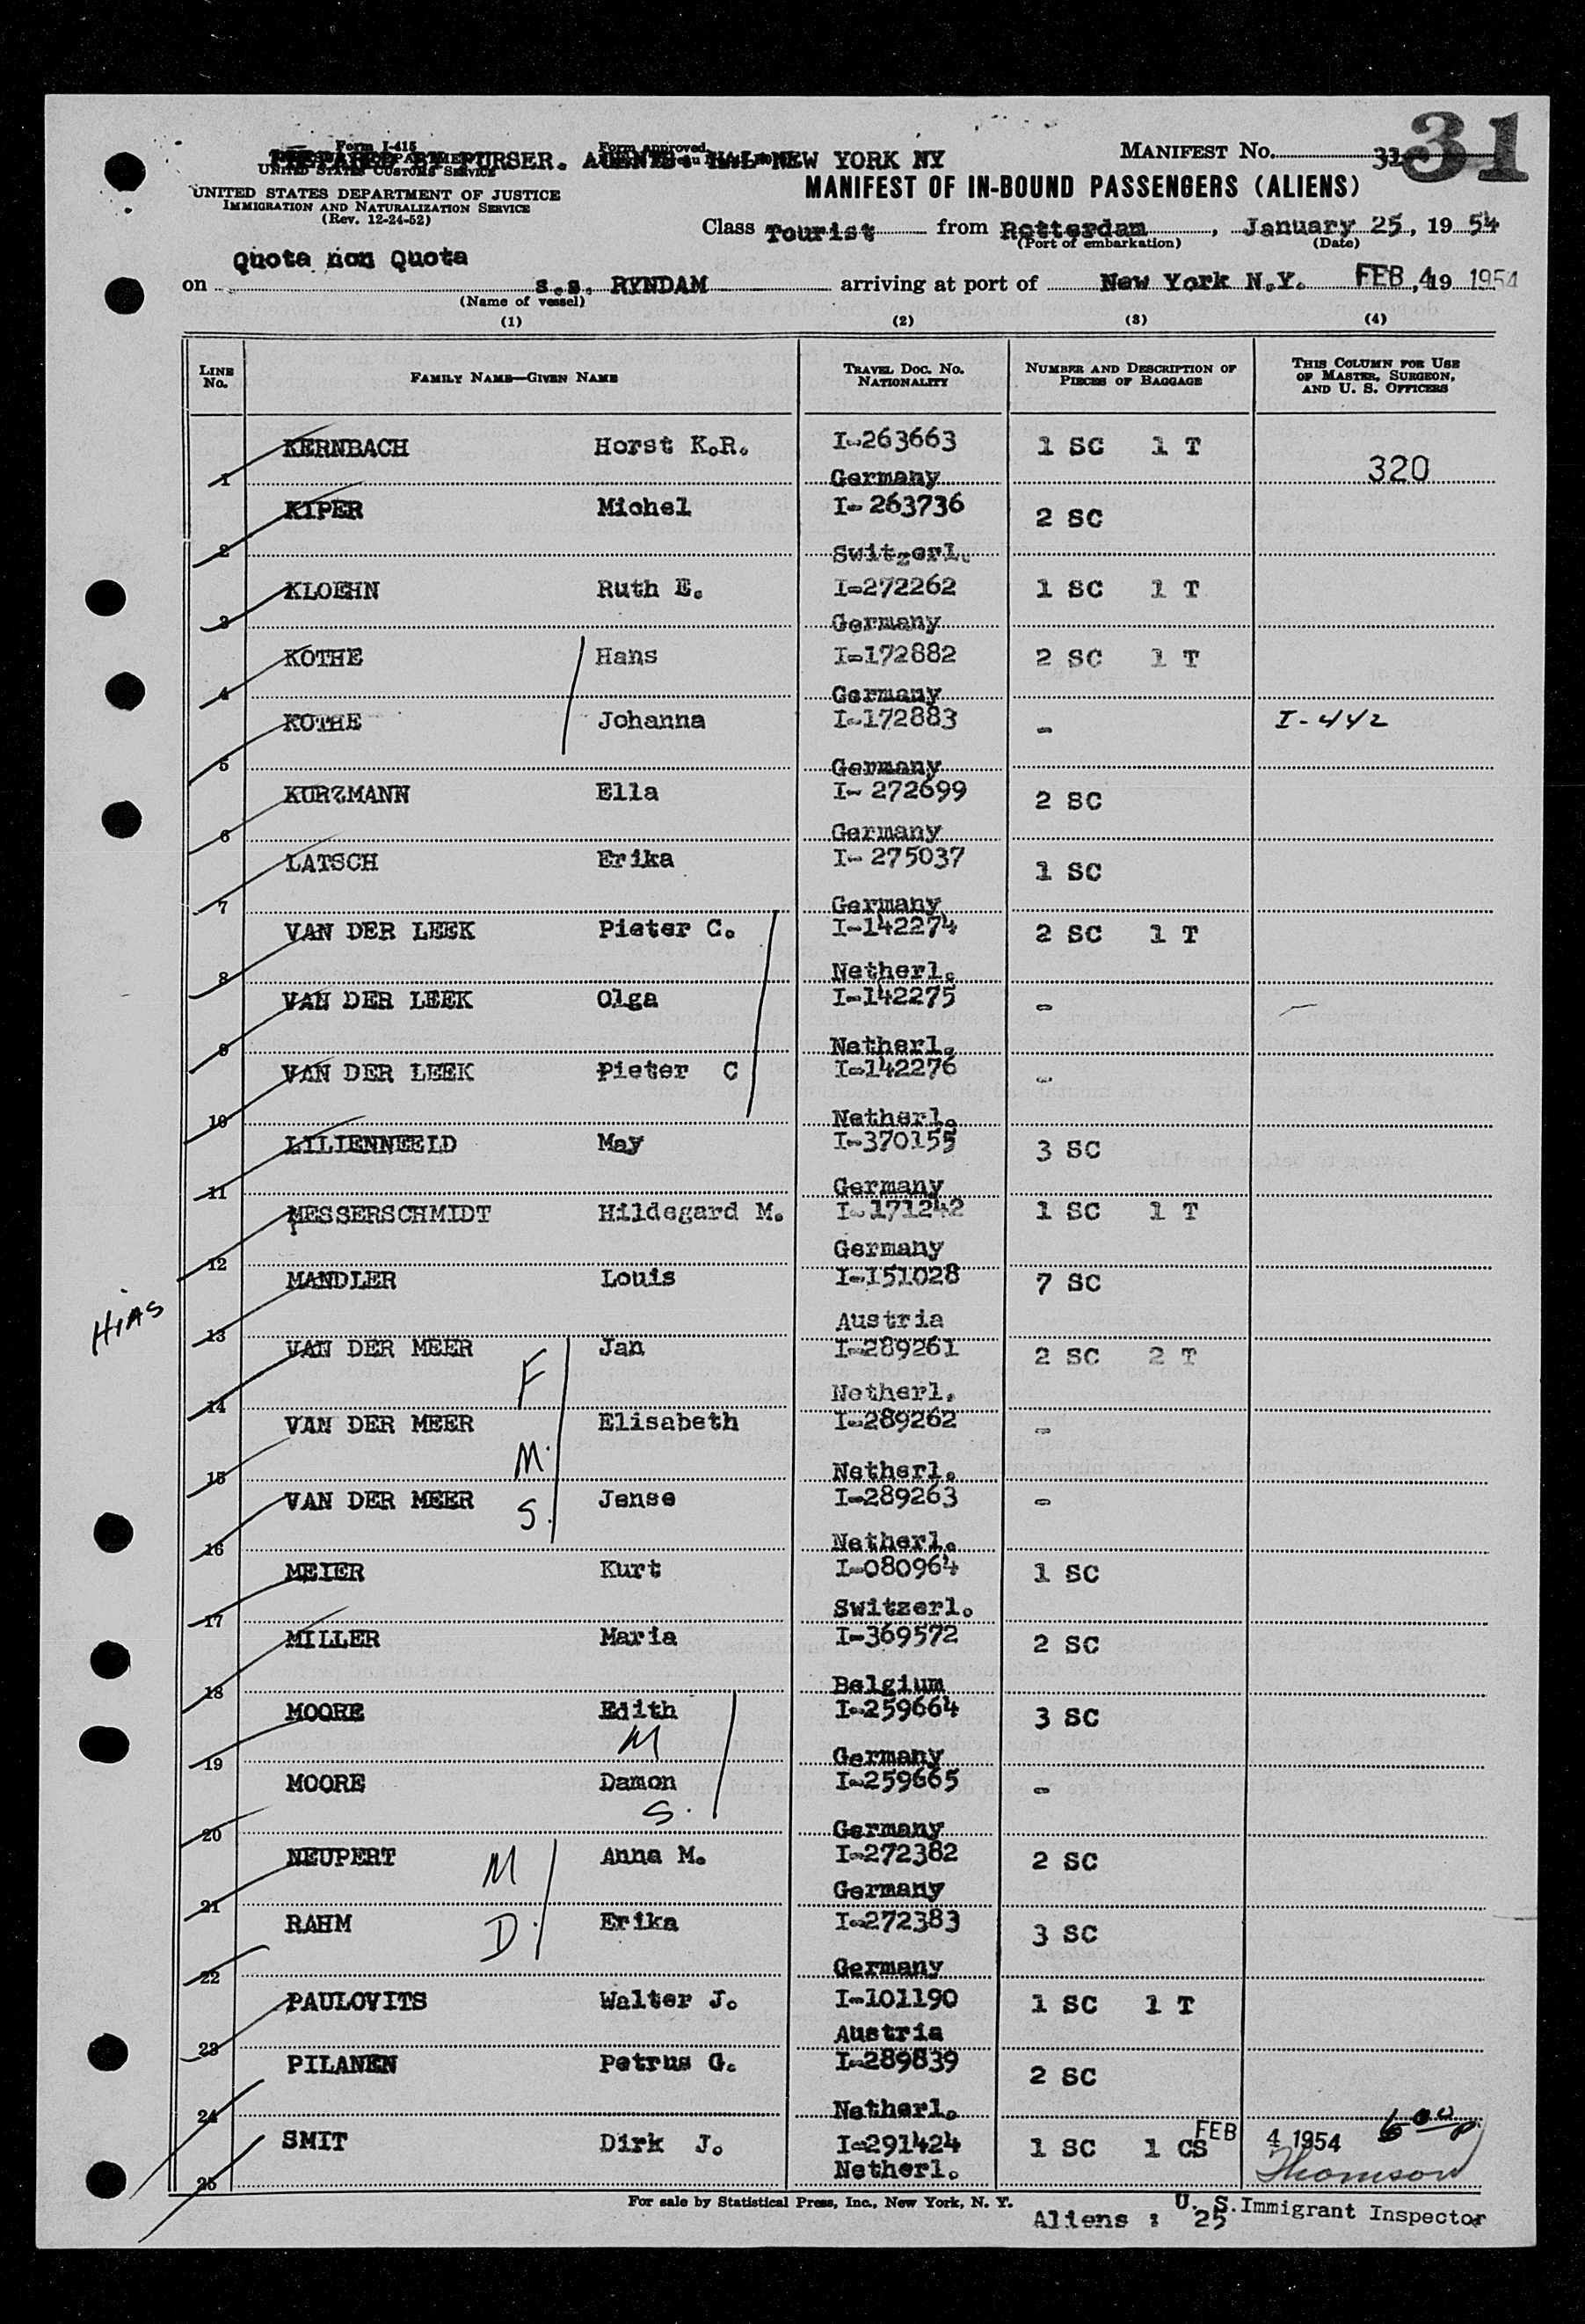 31
Form I-415
Form approved.
PREPARED BY PURSER. AGENTS: HAL NEW YORK NY
UNITED STATES CUSTOMS SERVICE
MANIFEST NO. 31
UNITED STATES DEPARTMENT OF JUSTICE
IMMIGRATION AND NATURALIZATION SERVICE
(Rev. 12-24-52)
MANIFEST OF IN-BOUND PASSENGERS (ALIENS)
Class Tourist from Rotterdam, January 25, 19 54
(Port of embarkation) (Date)
Quota non Quota
on s.s. RYNDAM arriving at port of New York N.Y. FEB 4, 19 1954
(Name of vessel)
(1) (2) (3) (4)
LINE No. FAMILY NAME—GIVEN NAME TRAVEL DOC. NO. NATIONALITY NUMBER AND DESCRIPTION OF PIECES OF BAGGAGE THIS COLUMN FOR USE OF MASTER, SURGEON, AND U. S. OFFICERS
KERNBACH Horst K.R. I-263663 1 SC 1 T
1 Germany 320
KIPER Michel I- 263736 2 SC
2 Switzerl.
KLOEHN Ruth E. I-272262 1 SC 1 T
3 Germany
KOTHE Hans I-172882 2 SC 1 T
4 Germany
KOTHE Johanna I-172883 - I-442
5 Germany
KURZMANN Ella I- 272699 2 SC
6 Germany
LATSCH Erika I- 275037 1 SC
7 Germany
VAN DER LEEK Pieter C. I-142274 2 SC 1 T
8 Netherl.
VAN DER LEEK Olga I-142275 -
9 Netherl.
VAN DER LEEK Pieter C I-142276 -
10 Netherl.
LILIENNEELD May I-370155 3 SC
11 Germany
MESSERSCHMIDT Hildegard M. I-171242 1 SC 1 T
12 Germany
MANDLER Louis I-151028 7 SC
HIAS
13 Austria
VAN DER MEER F Jan I-289261 2 SC 2 T
14 Netherl.
VAN DER MEER M. Elisabeth I-289262 -
15 Netherl.
VAN DER MEER S. Jense I-289263 -
16 Netherl.
MEIER Kurt I-080964 1 SC
17 Switzerl.
MILLER Maria I-369572 2 SC
18 Belgium
MOORE Edith I-259664 3 SC
M
19 Germany
MOORE Damon I-259665 -
S.
20 Germany
NEUPERT M Anna M. I-272382 2 SC
21 Germany
RAHM D. Erika I-272383 3 SC
22 Germany
PAULOVITS Walter J. I-101190 1 SC 1 T
23 Austria
PILANEN Petrus G. I-289839 2 SC
24 Netherl.
SMIT Dirk J. I-291424 1 SC 1 CS FEB 4 1954
25 Netherl. Thomson
For sale by Statistical Press, Inc., New York, N. Y.
U. S. Immigrant Inspector
Aliens : 25